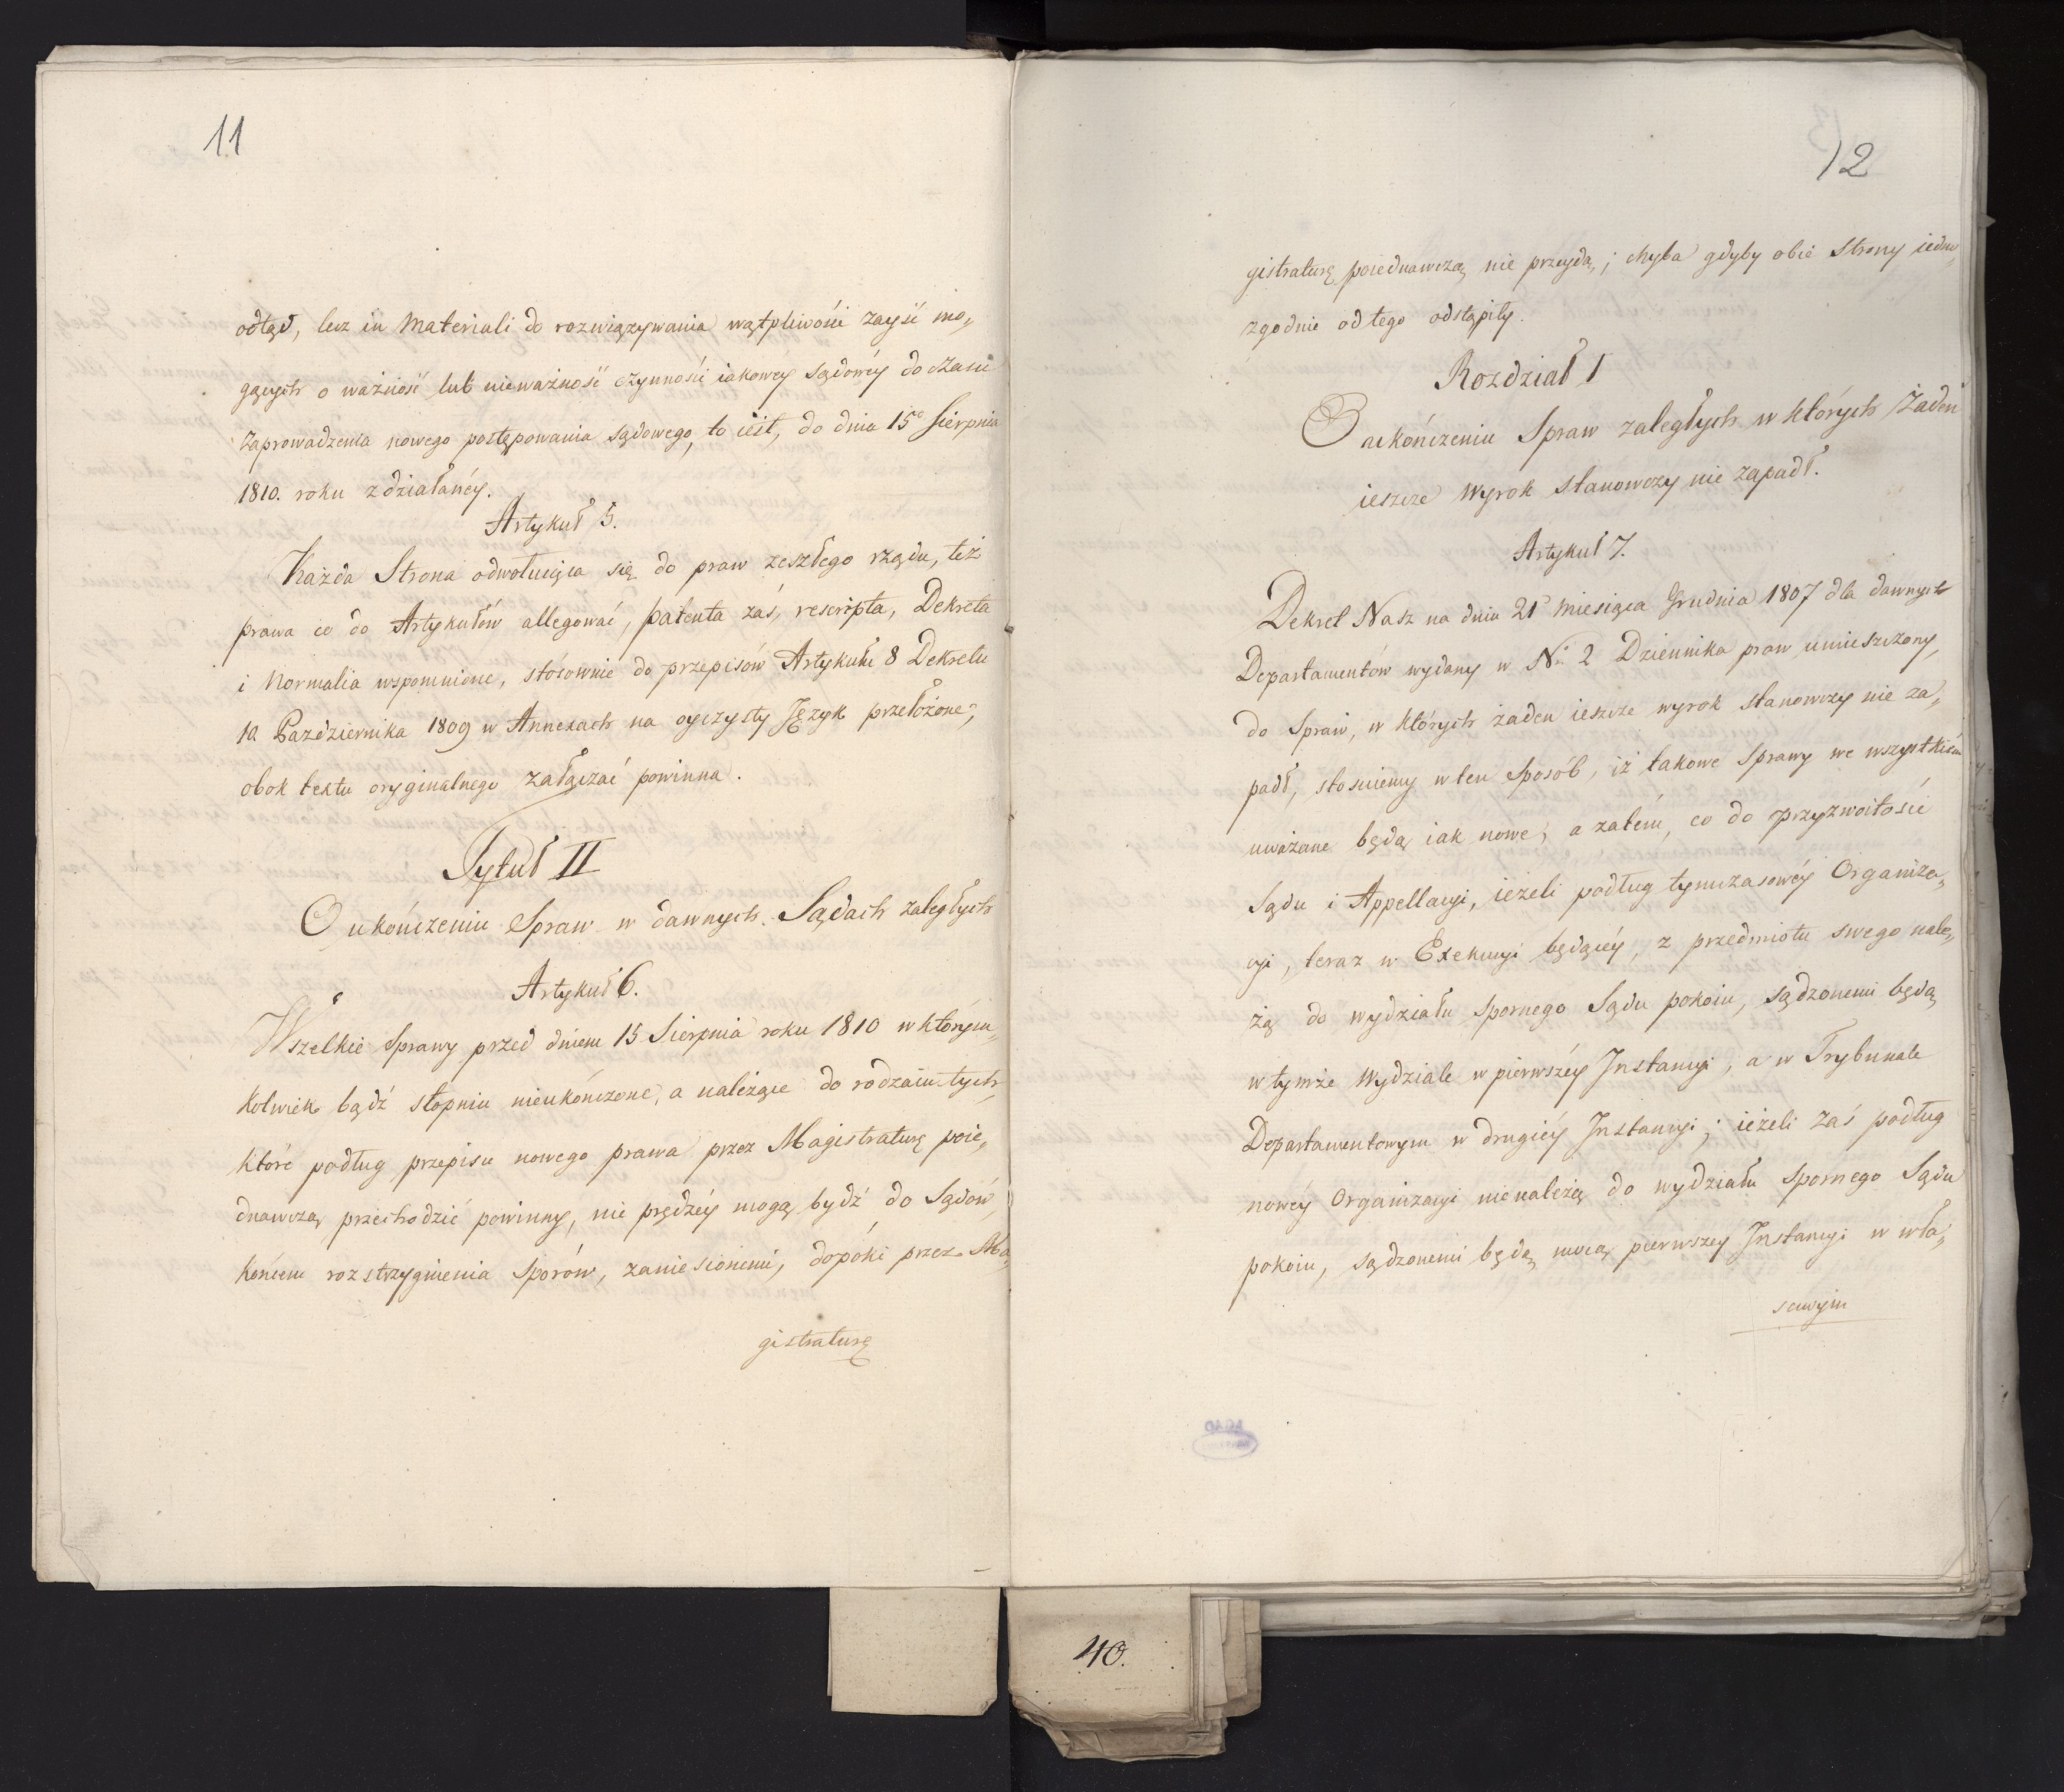 11
odtąd, lecz in Materiali do rozwiązywania wątpliwości zayść mo„
gących o ważność lub nieważność czynności iakowey sądowéy do czasu
zaprowadzenia nowego postępowania sądowego, to iest, do dnia 15º Sierpnia
1810. roku zdziałanéy.
Artykuł 5.
Każda Strona odwołuiąca się do praw zeszłego rządu, też
prawa co do Artykułów allegować, patenta zaś, rescripta, Dekreta
i Normalia wspomnione, stósownie do przepisów Artykułu 8 Dekretu
10 Pazdziernika 1809 w Annexach na oyczysty Język przełożone,
obok textu oryginalnego załączać powinna.
Tytuł II
O ukończeniu Spraw w dawnych Sądach zaległych
Artykuł 6.
Wszelkie Sprawy przed dniem 15 Sierpnia roku 1810 w którym„
kolwiek bądź stopniu nieukończone, a należące do rodzaiu tych
które podług przepisu nowego prawa przez Magistraturę poie„
dnawczą przechodzić powinny, nie prędzéy mogą bydź do Sądów,
końcem rozstrzygnienia sporów, zaniesionemi, dopóki przez Ma„
gistraturę
12
gistraturę poiednawczą nie przeydą; chyba gdyby obie Strony iedno„
zgodnie od tego odstąpiły.
Rozdział I
O ukończeniu Spraw zaległych w których żaden
ieszcze wyrok stanowczy nie zapadł.
Artykuł 7.
Dekret Nasz na dniu 21 miesiąca Grudnia 1807 dla dawnych
Departamentów wydany w Nº 2 Dziennika praw umieszczony,
do Spraw, w których żaden ieszcze wyrok stanowczy nie za„
padł, stosuiemy w ten sposób, iż takowe Sprawy we wszystkiém
uważane będą iak nowe, a zatém, co do przyzwoitości
Sądu i Appellacyi, ieżeli podług tymczasowéy Organiza„
cyi, teraz w Exekucyi będącéy, z przedmiotu swego nale„
żą do wydziału spornego Sądu pokoiu, sądzonemi będą
w tymże Wydziale w pierwszéy Instancyi, a w Trybunale
Departamentowym w drugiéy Instancyi; ieżeli zaś podług
nowéy Organizacyi nienależą do wydziału spornego Sądu
pokoiu, sądzonemi będą mocą pierwszey Instancyi w wła„
scwym
40.